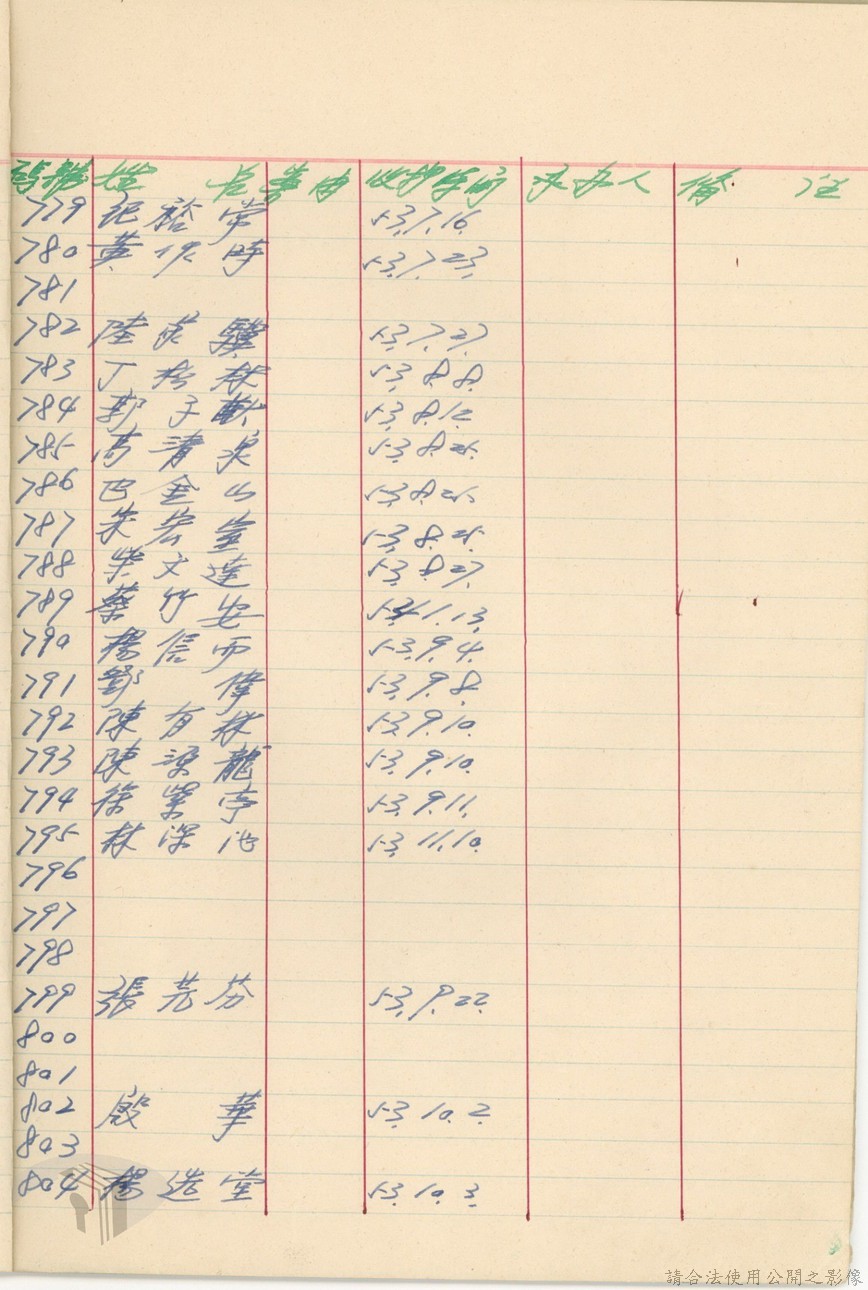 號 姓名 事由 收押年間 承办人 備註
779 紀裕常 53.7.16.
780 黃作時 53.7.23.
781
782 陸英驥 53.7.27.
783 丁松林 53.8.8.
784 郭子猷 53.8.12.
785 高清泉 53.8.25.
786 巴金山 53.8.25.
787 朱宏 53.8.25.
788 柴文達 53.8.27.
789 蔡竹安 11.13.
790 楊信雨 53.9.4.
791 鄧偉 53.9.8.
792 陳有林 53.9.10.
793 陳深龍 53.9.10.
794 徐紫亭 53.9.11.
795 林深池 53.11.10.
796
797
798
799 張芬 53.9.22.
800
801
802 殷華 53.10.2.
803
804 楊造堂 53.10.3.
請合法使用公開之影像